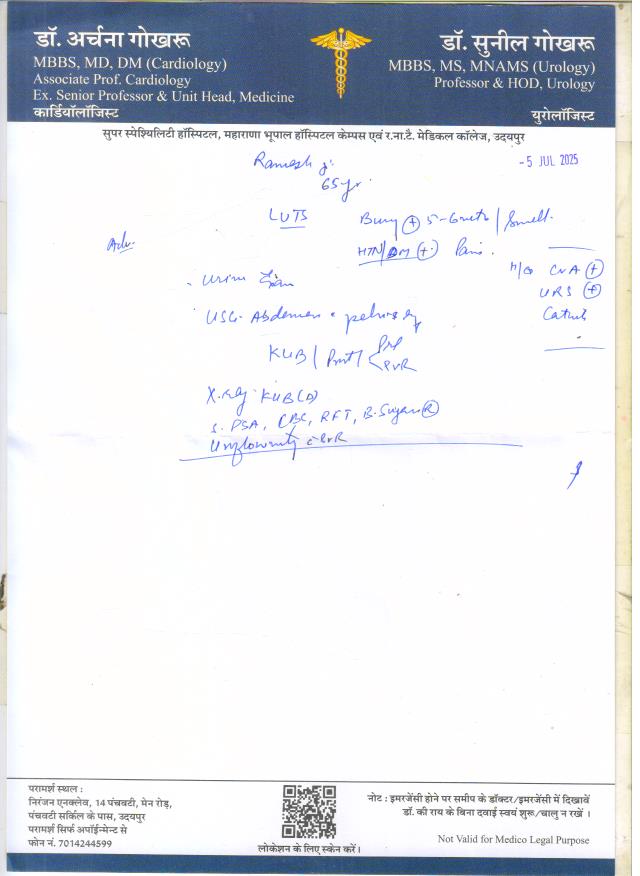 डॉ. अर्चना गोखरू
MBBS, MD, DM (Cardiology)
Associate Prof. Cardiology
Ex. Senior Professor & Unit Head, Medicine
कार्डियॉलॉजिस्ट
डॉ. सुनील गोखरू
MBBS, MS, MNAMS (Urology)
Professor & HOD, Urology
युरोलॉजिस्ट
सुपर स्पेश्यिलिटी हॉस्पिटल, महाराणा भूपाल हॉस्पिटल केम्पस एवं र.ना.टै. मेडिकल कॉलेज, उदयपुर
Ramesh ji
65yr.
-5 JUL 2025
LUTS
Burn (+) 5-6 mnth / Smell.
HTN/DM (+) Pain.
Adv.
H/O CVA (+)
URS (+)
Urine
USG. Abdomen & pelvis
KUB / Prost
Pre
PVR
X-ray KUB (D)
S. PSA, CBC, RFT, B. Sugar (R)
Uroflowmetry c PVR
परामर्श स्थल :
निरंजन एनक्लेव, 14 पंचवटी, मेन रोड़,
पंचवटी सर्किल के पास, उदयपुर
परामर्श सिर्फ अपॉईन्मेन्ट से
फोन नं. 7014244599
लोकेशन के लिए स्केन करें।
नोट : इमरजेंसी होने पर समीप के डॉक्टर/इमरजेंसी में दिखावें
डॉ. की राय के बिना दवाई स्वयं शुरू/चालु न रखें ।
Not Valid for Medico Legal Purpose